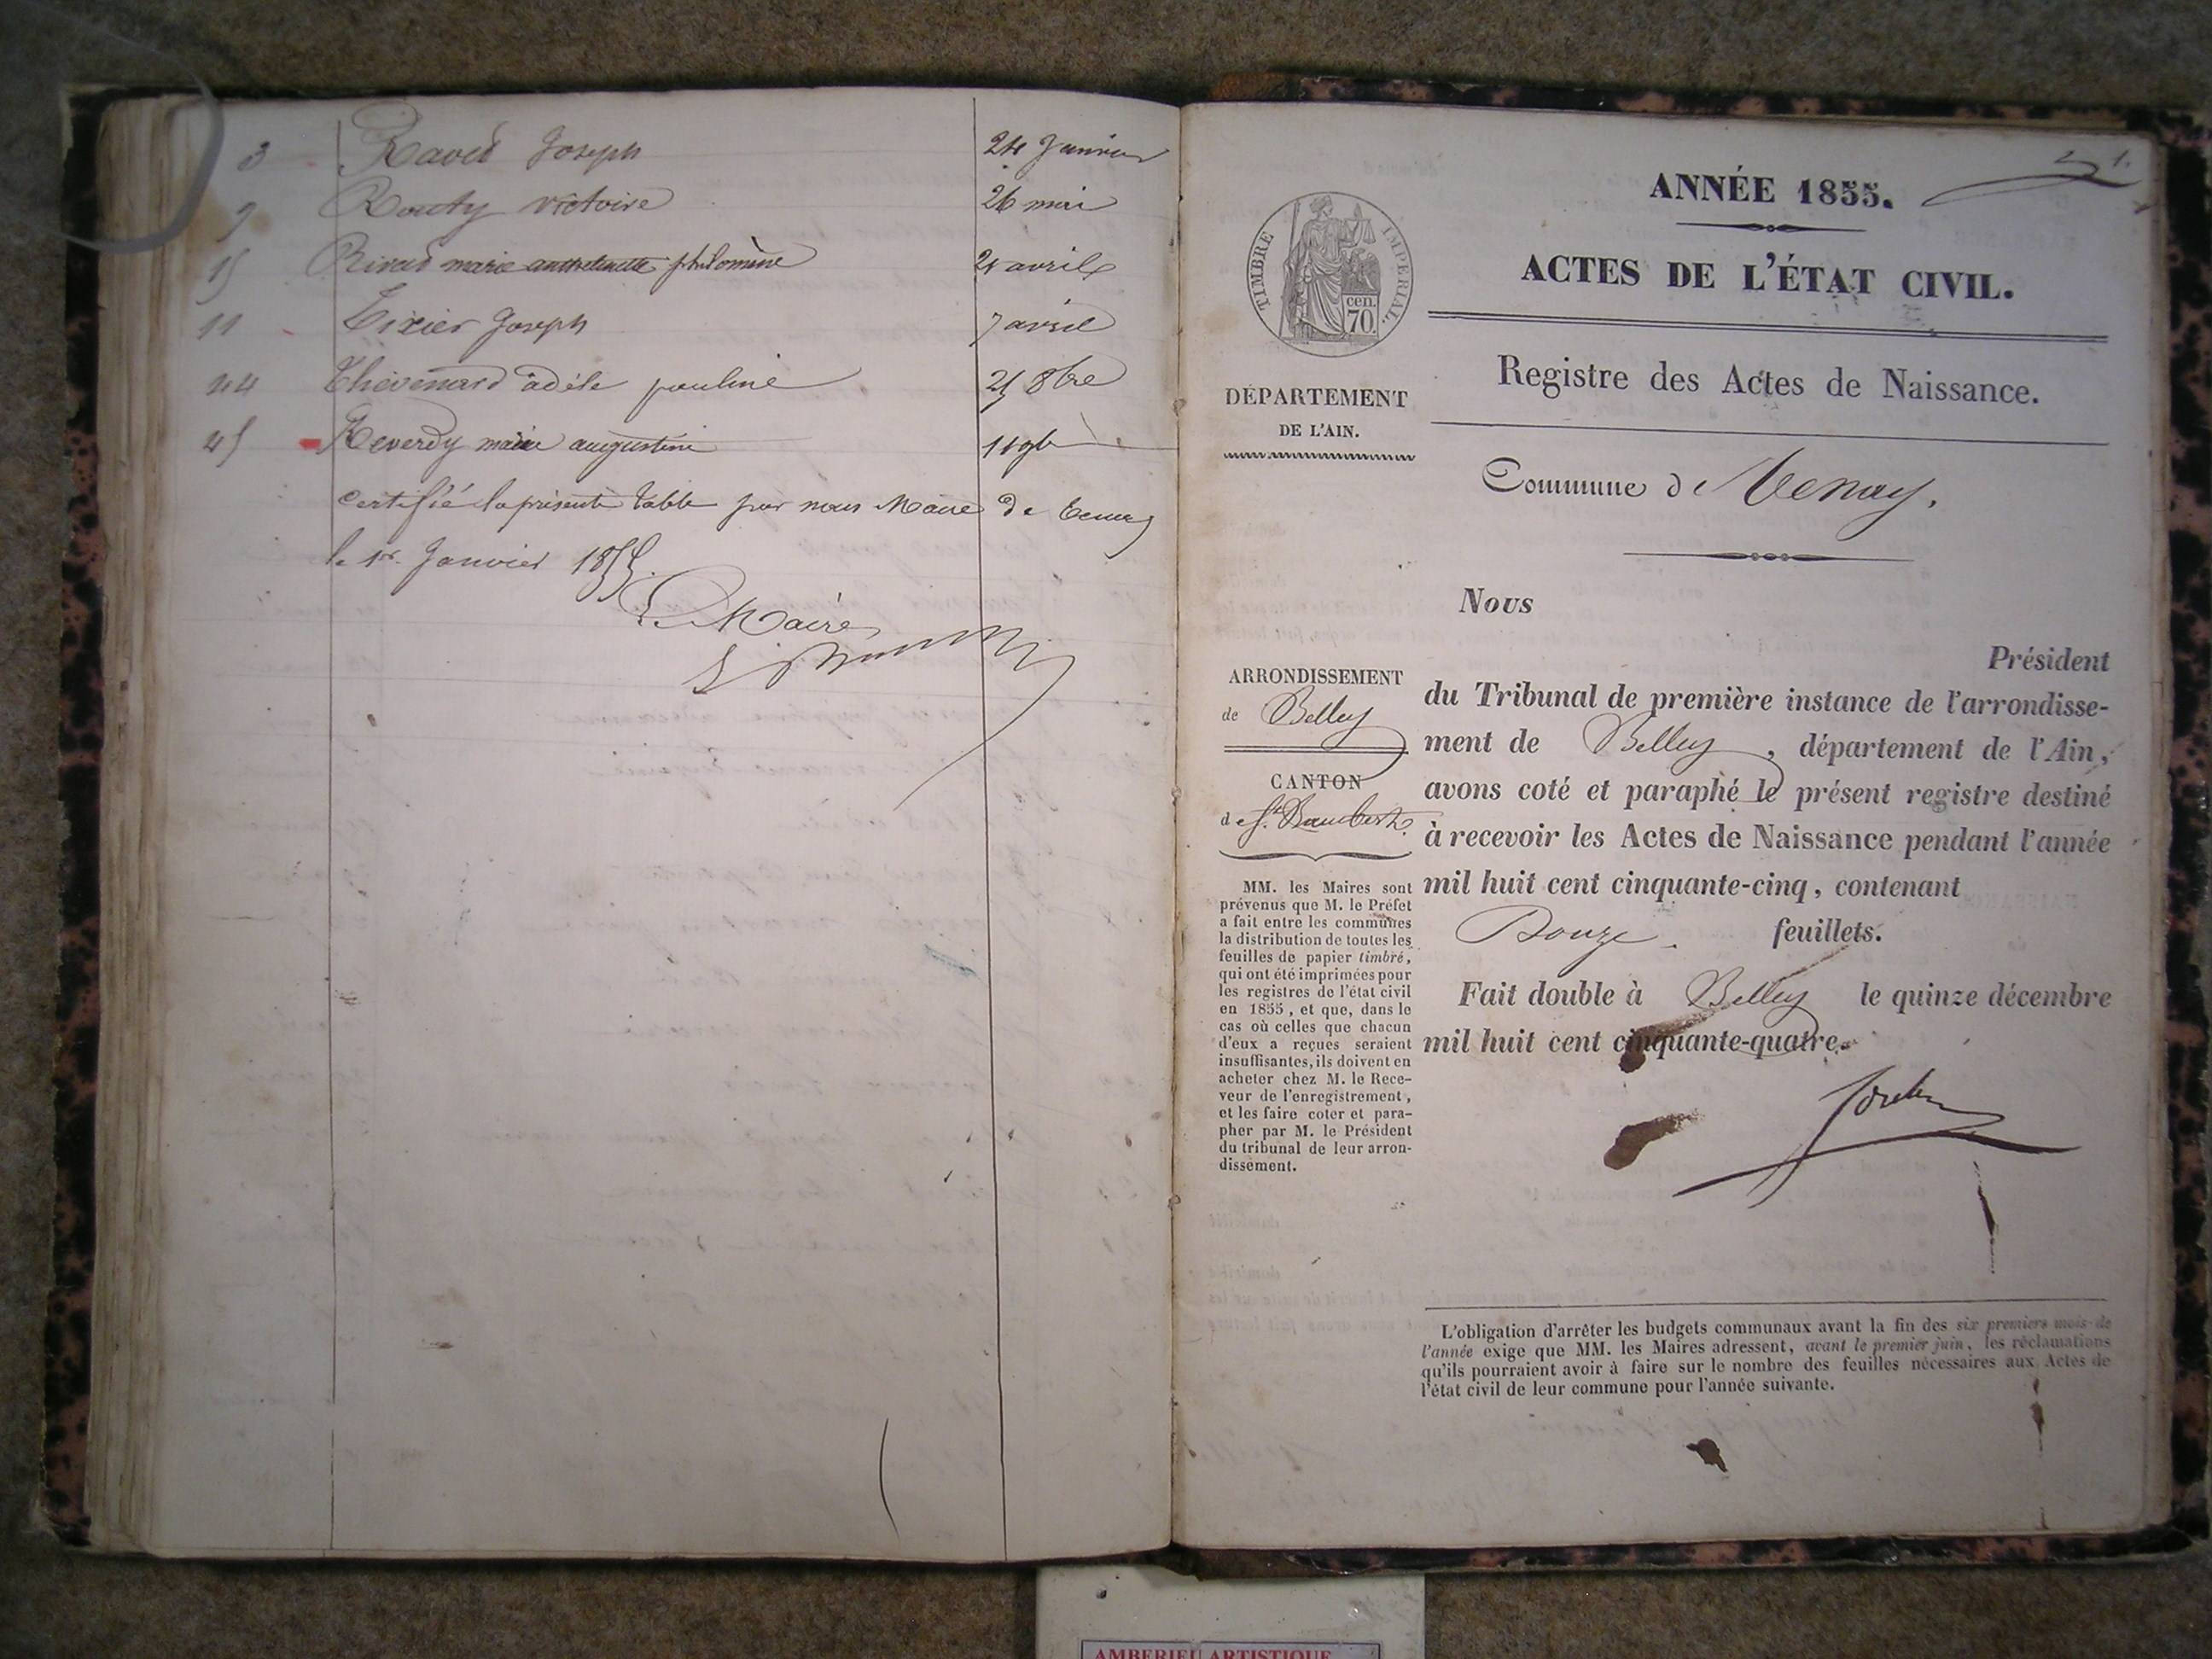 3 Ravet Joseph 24 Janvier
9 Routy victoire 26 mai
15 Rivat marie philomène avril
11 Tixier Joseph 7 avril
44 Thévenard adèle pauline 25 8bre
45 Reverdy marie augustine
Certifié la présente table par nous Maire de Tenay
le 1er Janvier 1855.
Le Maire
1.
ANNÉE 1855.
ACTES DE L'ÉTAT CIVIL.
Registre des Actes de Naissance.
Commune de Tenay.
TIMBRE IMPERIAL
cen.
70
DÉPARTEMENT
DE L'AIN.
ARRONDISSEMENT
de Belley
CANTON
de St. Rambert.
MM. les Maires sont
prévenus que M. le Préfet
a fait entre les communes
la distribution de toutes les
feuilles de papier timbré,
qui ont été imprimées pour
les registres de l'état civil
en 1855, et que, dans le
cas où celles que chacun
d'eux a reçues seraient
insuffisantes, ils doivent en
acheter chez M. le Rece-
veur de l'enregistrement,
et les faire coter et para-
pher par M. le Président
du tribunal de leur arron-
dissement.
Nous
Président
du Tribunal de première instance de l'arrondisse-
ment de Belley, département de l'Ain,
avons coté et paraphé le présent registre destiné
à recevoir les Actes de Naissance pendant l'année
mil huit cent cinquante-cinq, contenant
Douze feuillets.
Fait double à Belley le quinze décembre
mil huit cent cinquante-quatre.
L'obligation d'arrêter les budgets communaux avant la fin des six premiers mois de
l'année exige que MM. les Maires adressent, avant le premier juin, les réclamations
qu'ils pourraient avoir à faire sur le nombre des feuilles nécessaires aux Actes de
l'état civil de leur commune pour l'année suivante.
AMBERIEU ARTISTIQUE